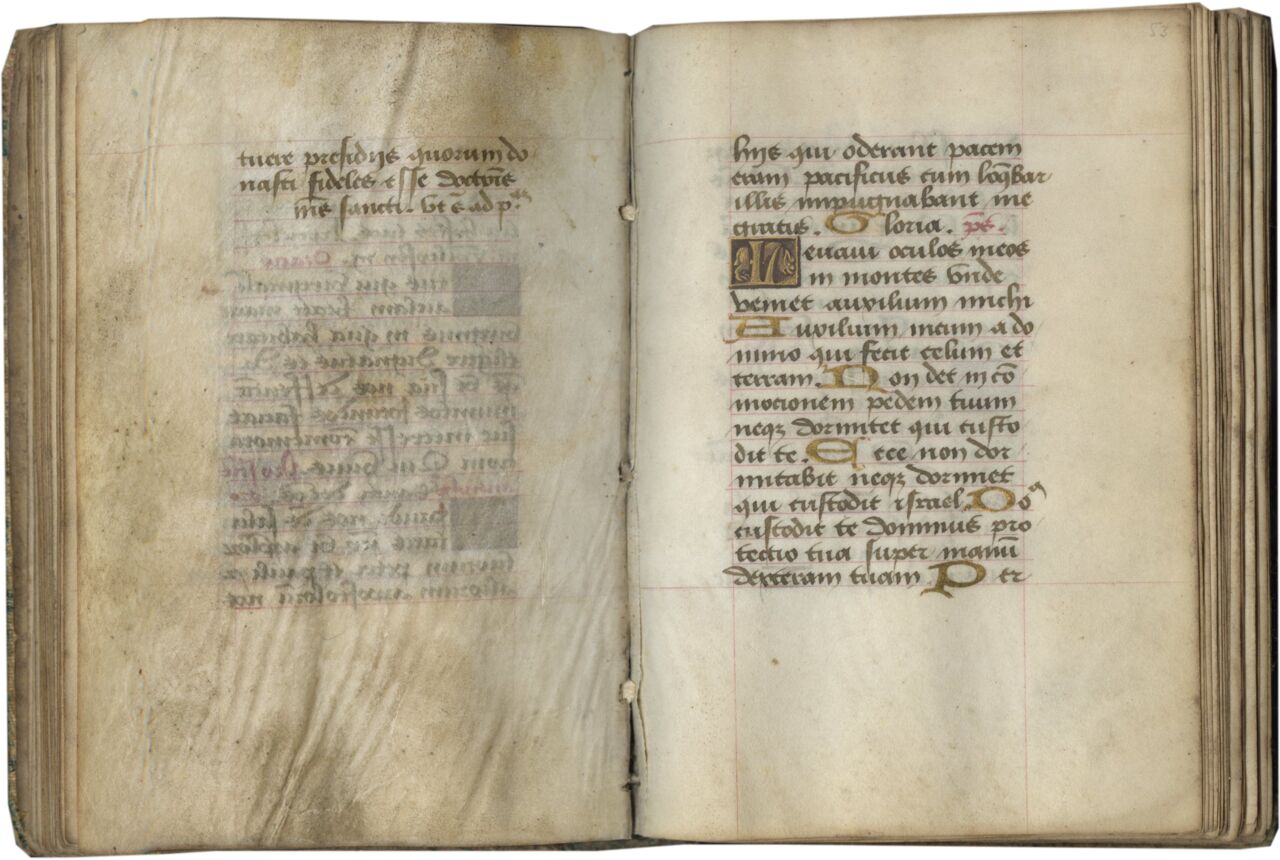 tuere presidijs quorum do
nasti fideles esse doctrīe
me sancti. vt s̄ ad pᵃᵐ
53
hijs qui oderant pacem
eram pacificus cum loq̄bar
illis impugnabant me
gratis. Gloria. ps.
Leuaui oculos meos
in montes vnde
veniet auxilium michi
Auxilium meum a do
mino qui fecit celum et
terram. Non det in cō
mocionem pedem tuum
neqȝ dormitet qui custo
dit te. Ecce non dor
mitabit neqȝ dormiet
qui custodit israel. Doᵃ
custodit te dominus pro
tectio tua super manū
dexteram tuam Per